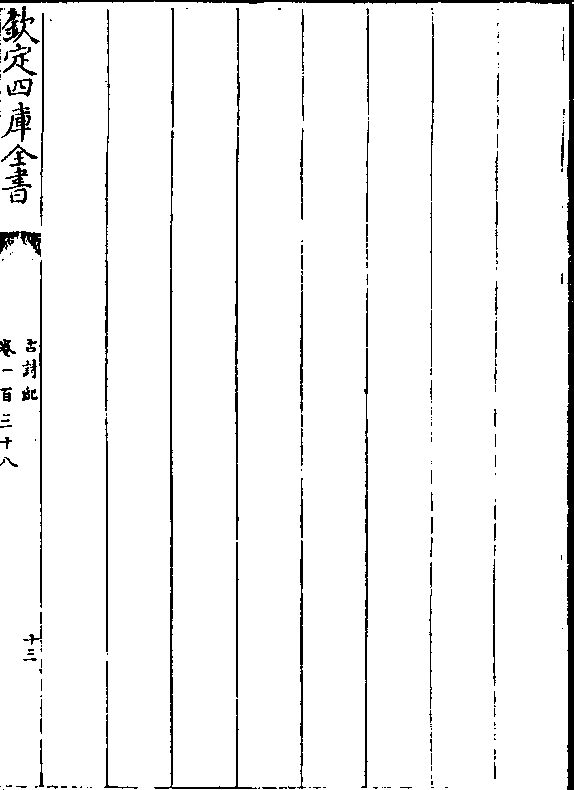 欽定四庫全書
古詩紀
卷一百三十八
十三